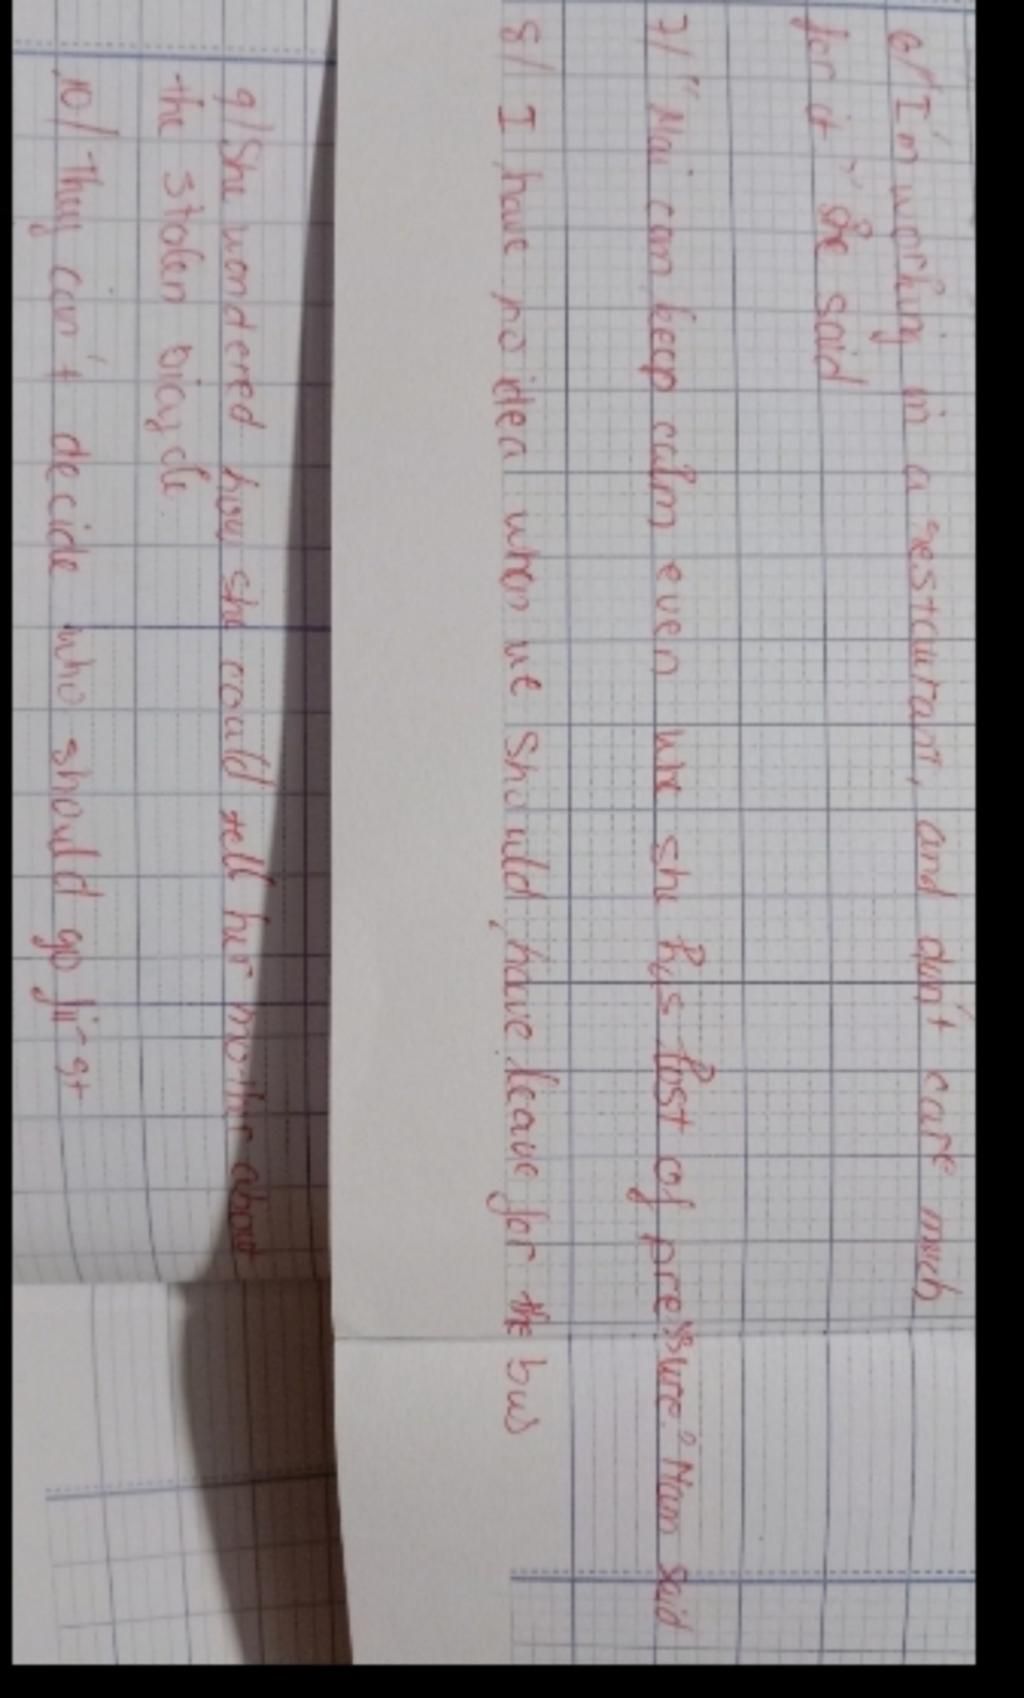 6/ "I'm working in a restaurant, and don't care much
for it" she said
7/ "Mai can keep calm even whe she has lost of pressure." Nam said
8/ I have no idea when we should have leave for the bus
9/ She wondered how she could tell her mother about
the stolen bicycle.
10/ They can't decide who should go first